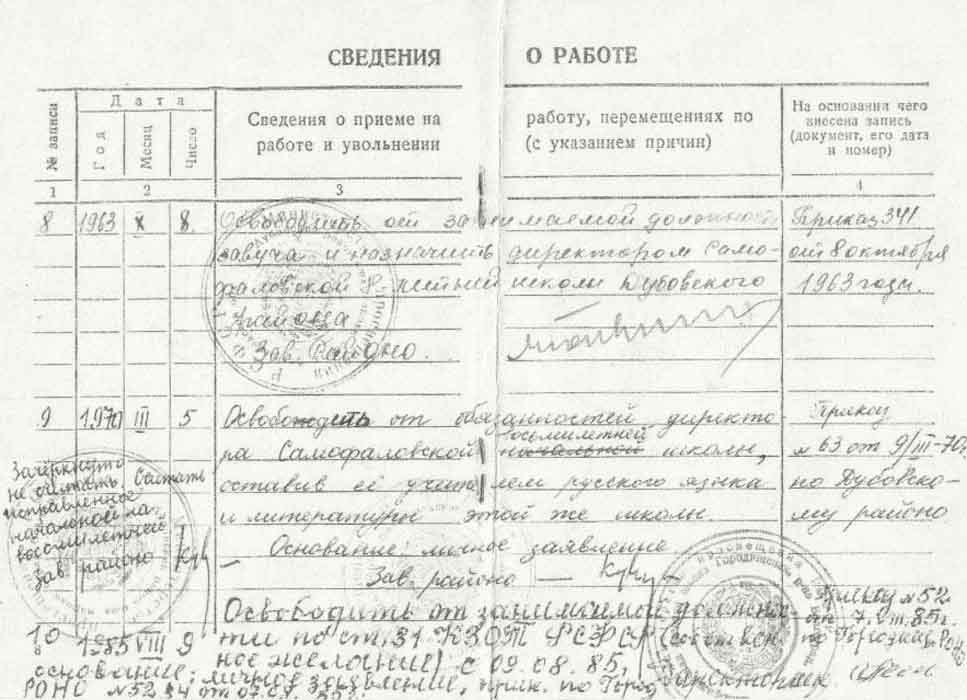 СВЕДЕНИЯ О РАБОТЕ
№ записи
Дата
Год
Месяц
Число
Сведения о приеме на работу, перемещениях по
работе и увольнении (с указанием причин)
На основании чего
внесена запись
(документ, его дата
и номер)
1 2 3 4
8 1963 X 8. Освободить от занимаемой должности Приказ 341
завуча и назначить директором Само- от 8 октября
фаловской 8 летней школы Дубовского 1963 года.
района
Зав. Районо.
9 1970 III 5 Освободить от обязанностей директо- Приказ
восьмилетней
ра Самофаловской начальной школы, № 63 от 9/III-70г
оставив её учителем русского языка по Дубовско-
и литературы этой же школы. му районо
Основание: личное заявление
Зав. районо —
Зачеркнуто
не считать Считать
исправленное
начальной на
восьмилетней
Зав. районо
Освободить от занимаемой должнос- Приказ № 52
от 7.VIII.85г.
10 1985 VIII 9 ти по ст. 31 КЗОТ РСФСР (собствен. по Городищ. РОНО
ное желание) с 09.08.85,
основание: личное заявление, прик. по Город
РОНО № 52